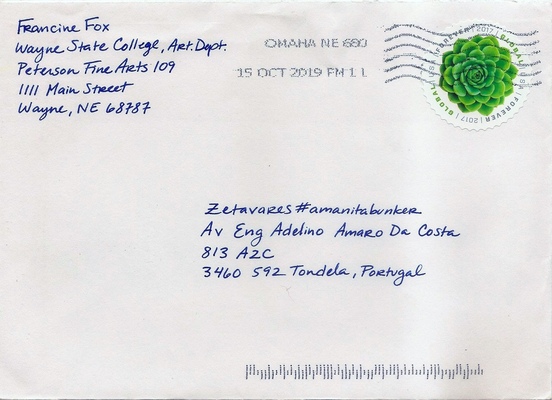 Francine Fox
Wayne State College, Art. Dept.
Peterson Fine Arts 109
1111 Main Street
Wayne, NE 68787
OMAHA NE 680
15 OCT 2019 PM 1 L
GLOBAL | USA | FOREVER | 2017 | GLOBAL | USA | FOREVER | 2017 |
Zetavares#amanitabunker
Av Eng Adelino Amaro Da Costa
813 A2C
3460 592 Tondela, Portugal